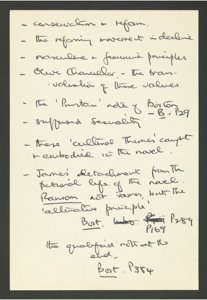 - conservatism & reform.
- the reforming movement in decline
- masculine & feminine principles
- Olive Chancellor - the trans-
valuation of these values
- the 'Puritan' note of Boston
- B - P29
- suffused sexuality
- these 'cultural themes' caught
& embodied in the novel.
- James' detachment from the
fictional life of the novel.
Ransom not James but the
'alternative principle'
Bost. P289
P169
the qualified note at the
end.
Bost. P384